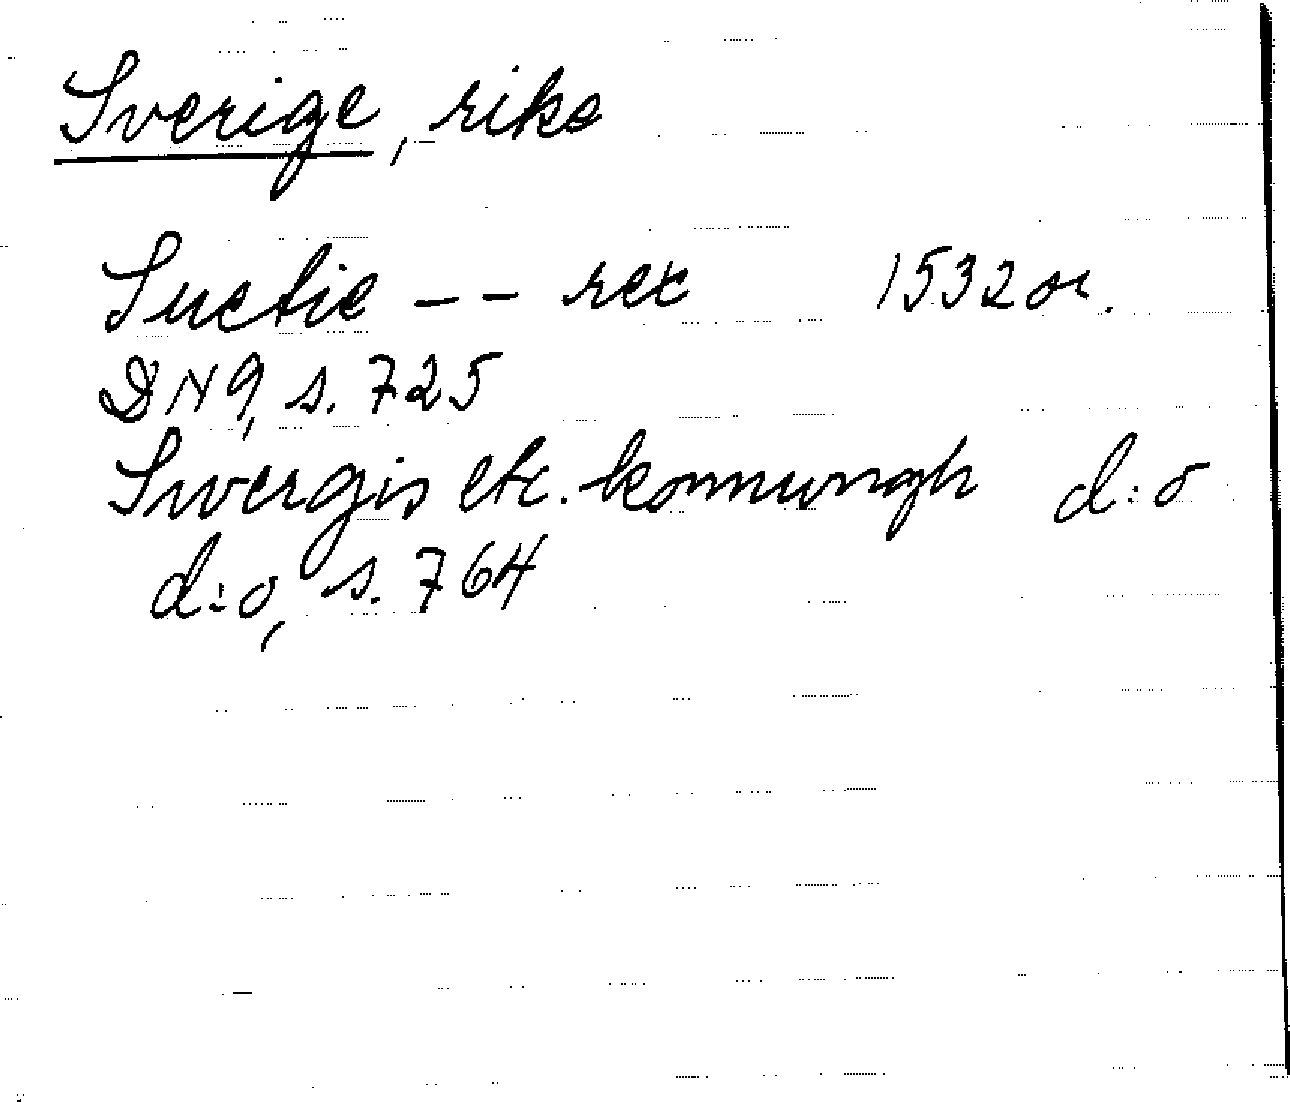 Sverige, rike
Suetie -- rex 1532 or.
DN 9, s. 725
Swergis etc. konnungh d:o
d:o, s. 764